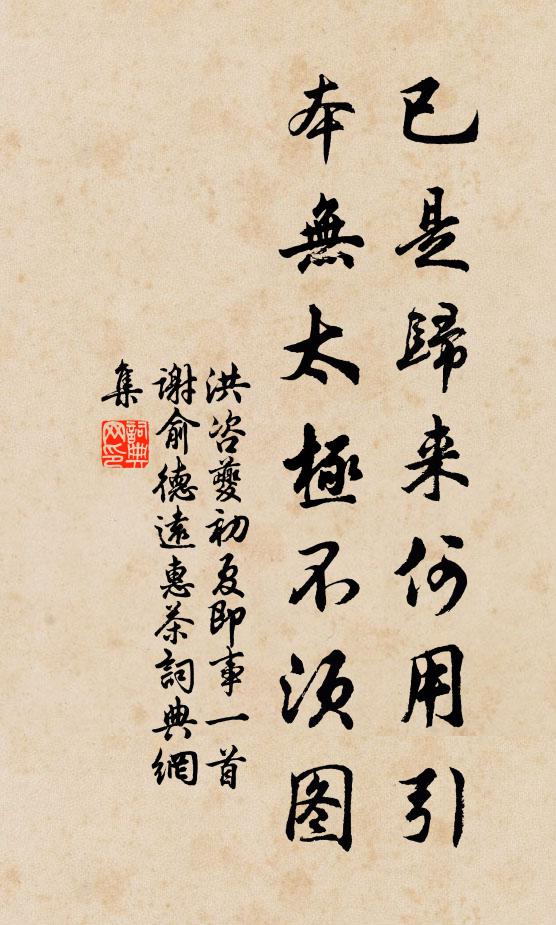 已是歸来何用引
本無太極不須图
洪咨夔初夏即事一首
謝俞德遠惠茶詞典網
集
詞典
网印